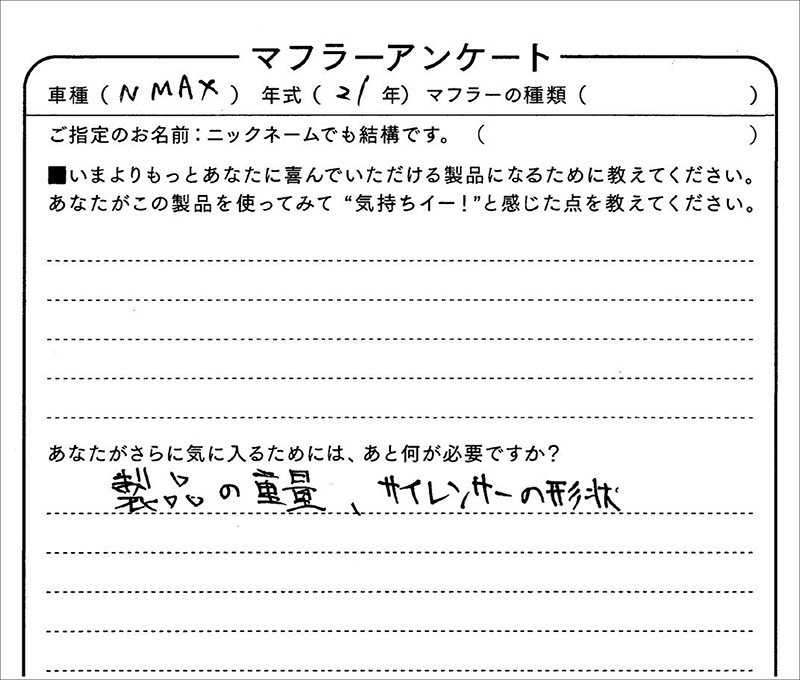 マフラーアンケート
車種（N MAX） 年式（21年）マフラーの種類（ ）
ご指定のお名前：ニックネームでも結構です。（ ）
■いまよりもっとあなたに喜んでいただける製品になるために教えてください。
あなたがこの製品を使ってみて“気持ちイー！”と感じた点を教えてください。
あなたがさらに気に入るためには、あと何が必要ですか？
製品の重量、サイレンサーの形状